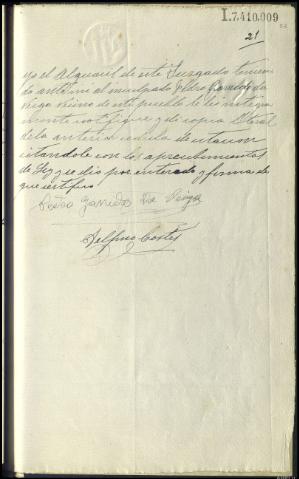 L.7.410.009
21
yo el Alguacil de este Juzgado tenien
do ante mi al inculpado Pedro Garrido de
Veiga vecino de este pueblo le lei integra
mente notifique y di copia literal
de la anterior cedula de citacion
citandole con los apercibimientos
de Ley quedo por enterado y firma de
que certifico
Pedro Garrido De Veiga
Delfino Cortes